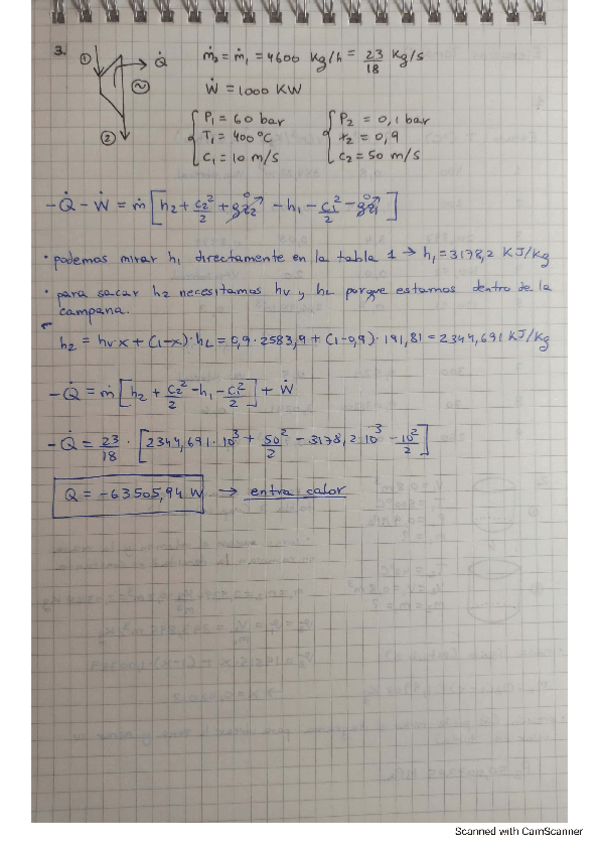 3.
① Q̇ ṁ₂ = ṁ₁ = 4600 Kg/h = 23/18 Kg/s
Ẇ = 1000 KW
②
P₁ = 60 bar P₂ = 0,1 bar
T₁ = 400°C x₂ = 0,9
C₁ = 10 m/s C₂ = 50 m/s
-Q̇ - Ẇ = ṁ [h₂ + C₂²/2 + gz₂⁰ - h₁ - C₁²/2 - gz₁⁰]
· podemos mirar h₁ directamente en la tabla 1 → h₁ = 3178,2 KJ/Kg
· para sacar h₂ necesitamos hv y hL porque estamos dentro de la
campana.
h₂ = hv·x + (1-x)·hL = 0,9·2583,9 + (1-0,9)·191,81 = 2344,691 KJ/Kg
-Q̇ = ṁ [h₂ + C₂²/2 - h₁ - C₁²/2] + Ẇ
-Q̇ = 23/18 · [2344,691·10³ + 50²/2 - 3178,2·10³ - 10²/2]
Q = -63505,94 W → entra calor
Scanned with CamScanner